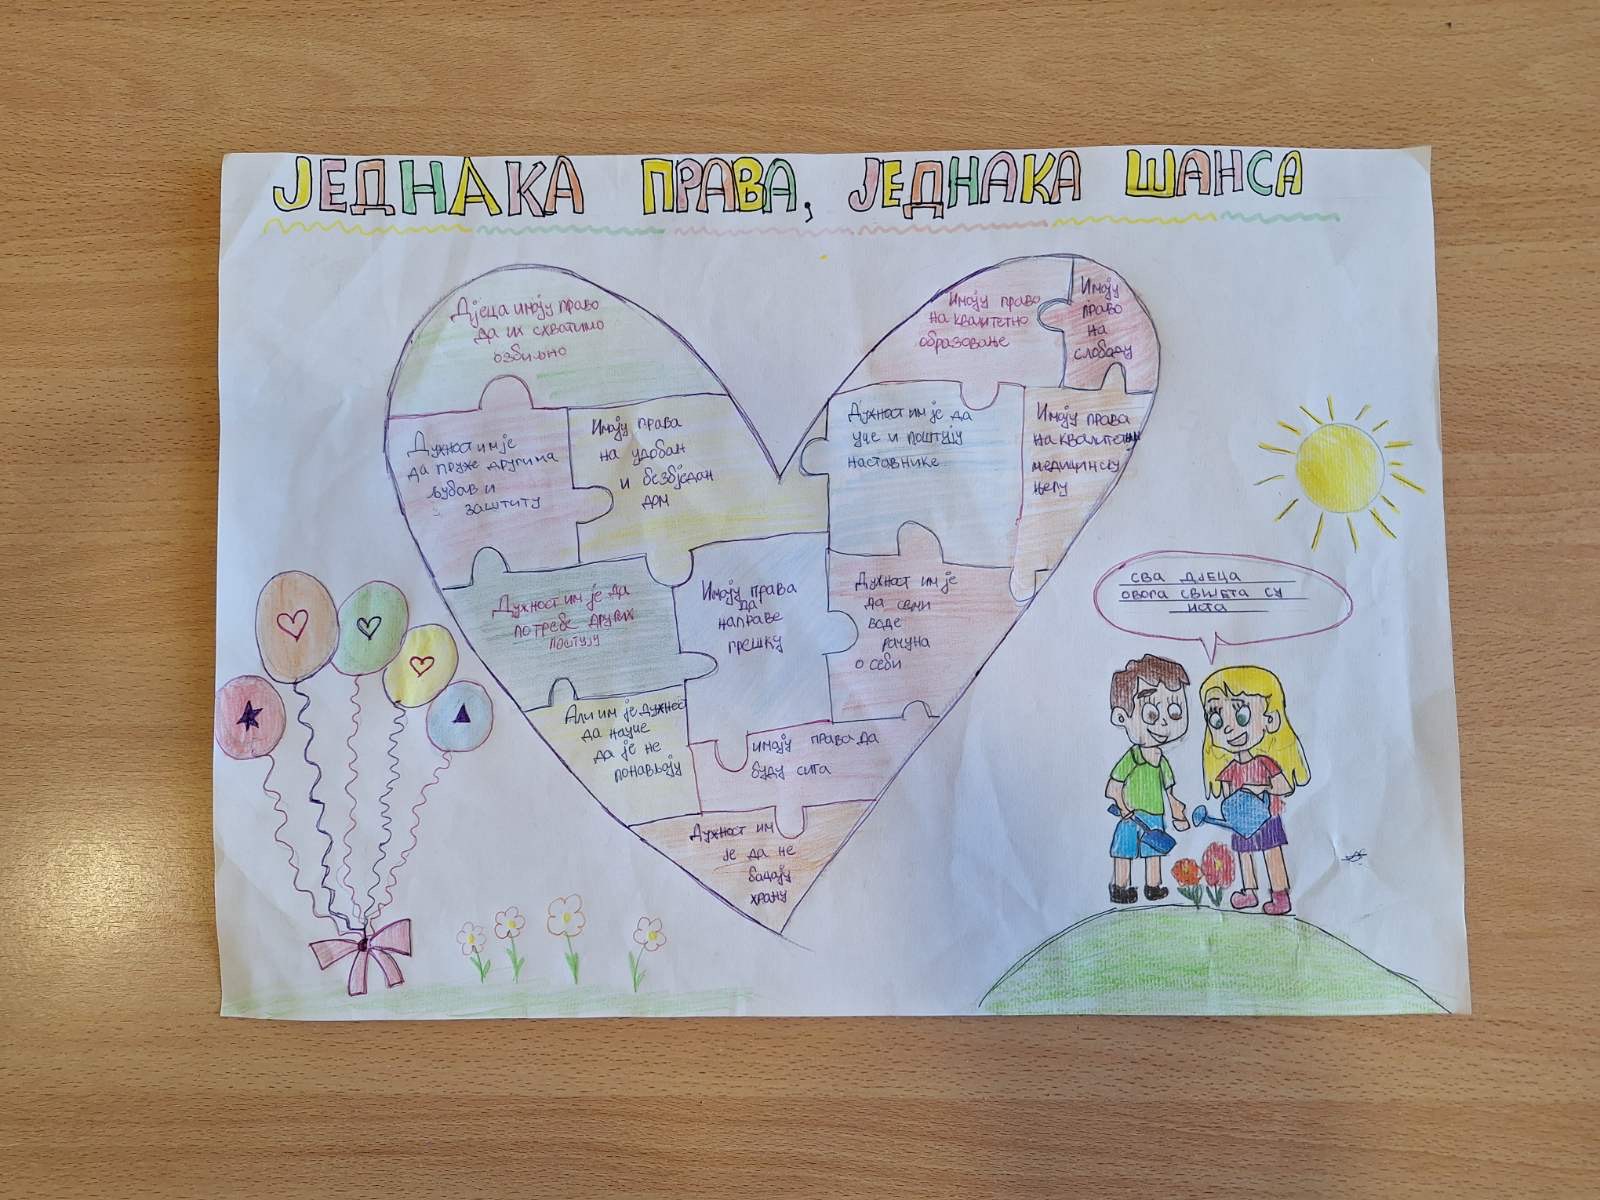 ЈЕДНАКА ПРАВА, ЈЕДНАКА ШАНСА
Дјеца имају право
да их схватимо
озбиљно
Имају право
на квалитетно
образовање
Имају
право
на
слободу
Дужност им је
да пруже другима
љубав и
заштиту
Имају права
на удобан
и безбједан
дом
Дужност им је да
уче и поштују
наставнике
Имају права
на квалитетну
медицинску
његу
Дужност им је да
потребе других
поштују
Имају права
да
направе
грешку
Дужност им је
да сами
воде
рачуна
о себи
Али им је дужност
да науче
да је не
понављају
имају права да
буду сита
Дужност им
је да не
бацају
храну
СВА ДЈЕЦА
ОВОГА СВИЈЕТА СУ
ИСТА